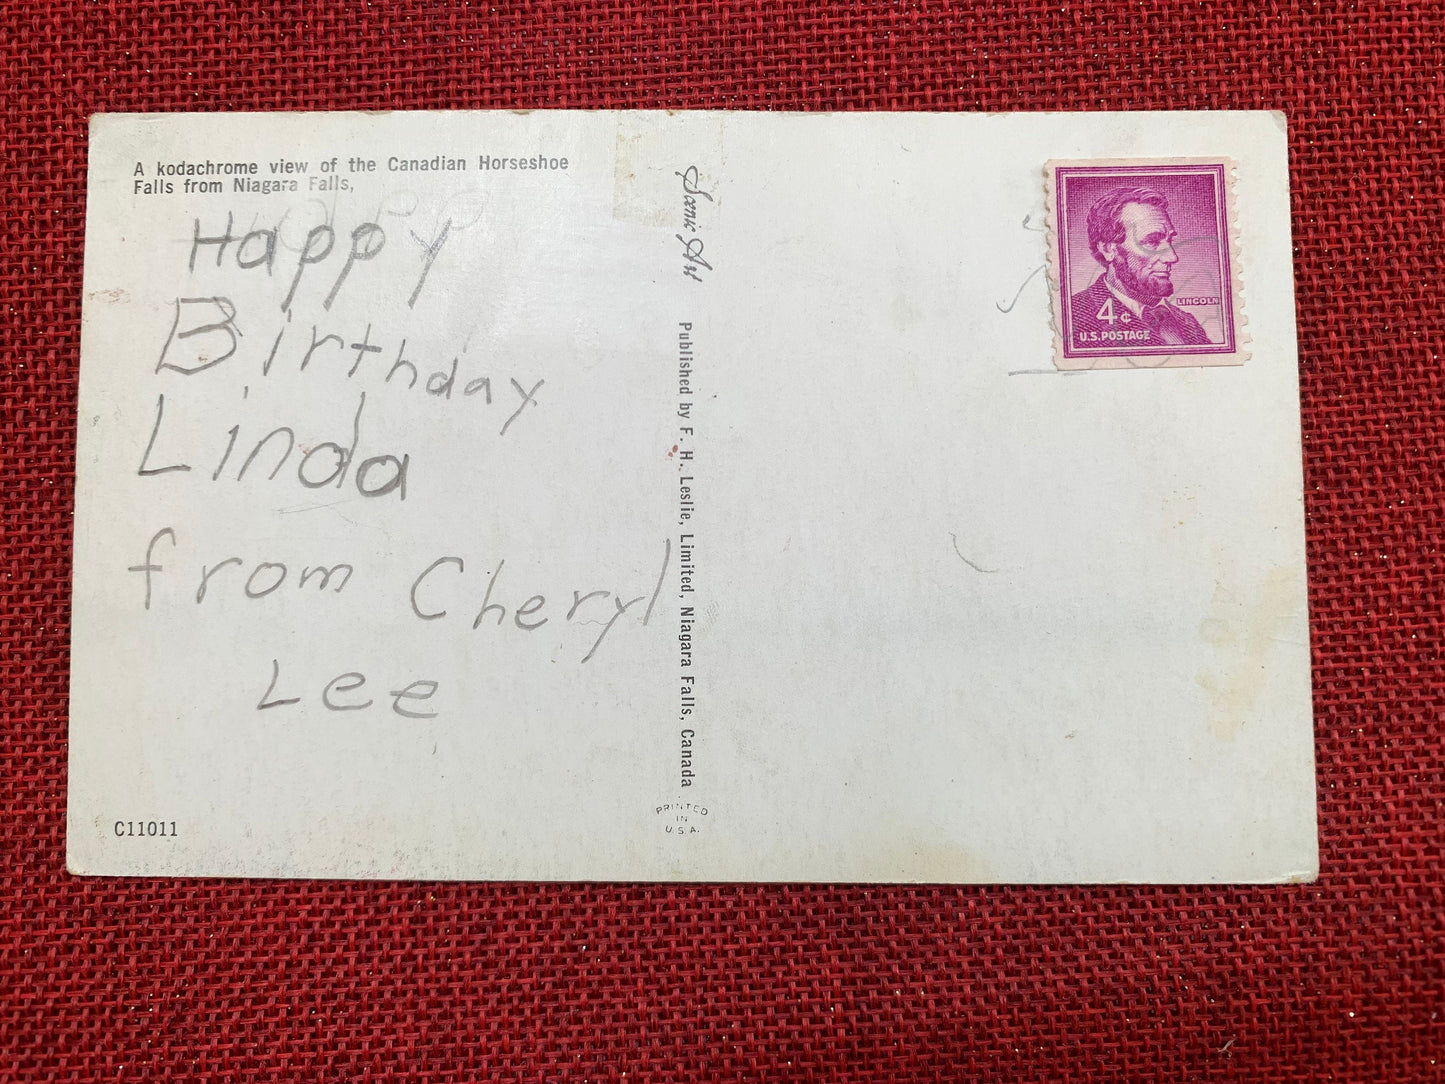 A kodachrome view of the Canadian Horseshoe
Falls from Niagara Falls,
Happy
Birthday
Linda
from Cheryl
Lee
C11011
Scenic Art
Published by F. H. Leslie, Limited, Niagara Falls, Canada
PRINTED
IN
U.S.A.
LINCOLN
4¢
U.S. POSTAGE